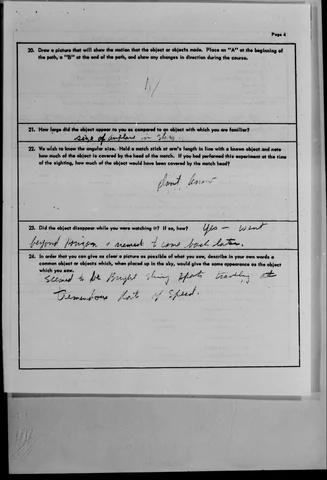 Page 4
20. Draw a picture that will show the motion that the object or objects made. Place an "A" at the beginning
of the path, a "B" at the end of the path, and show any changes in direction during the course.
21. How large did the object appear to you as compared to an object with which you are familiar?
size of airplane in sky.
22. We wish to know the angular size. Hold a match stick at arm's length in line with a known object and note
how much of the object is covered by the head of the match. If you had performed this experiment at the time
of the sighting, how much of the object would have been covered by the match head?
Dont know
23. Did the object disappear while you were watching it? If so, how? Yes - went
beyond horizon & seemed to come back later.
24. In order that you can give as clear a picture as possible of what you saw, describe in your own words a
common object or objects which, when placed up in the sky, would give the same appearance as the object
which you saw.
Seemed to be Bright shing spots traveling at
Tremendous Rate of Speed.